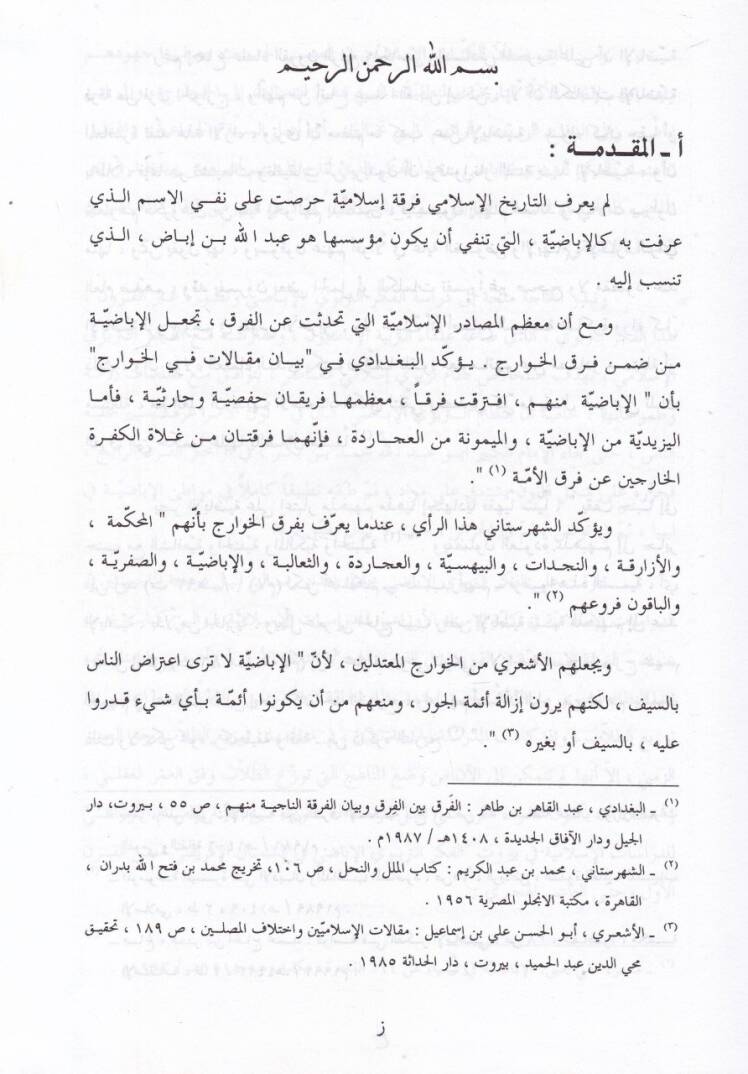 بسم الله الرحمن الرحيم
أ ـ المقدمة :
لم يعرف التاريخ الإسلامي فرقة إسلاميّة حرصت على نفي الاسم الذي
عرفت به كالإباضيّة ، التي تنفي أن يكون مؤسسها هو عبد الله بن إباض ، الذي
تنسب إليه .
ومع أن معظم المصادر الإسلاميّة التي تحدثت عن الفرق ، تجعل الإباضيّة
من ضمن فرق الخوارج . يؤكّد البغدادي في "بيان مقالات في الخوارج"
بأن " الإباضيّة منهم ، افترقت فرقاً ، معظمها فريقان حفصيّة وحارثيّة ، فأما
اليزيديّة من الإباضيّة ، والميمونة من العجاردة ، فإنّهما فرقتان من غلاة الكفرة
الخارجين عن فرق الأمّة (١) ".
ويؤكّد الشهرستاني هذا الرأي ، عندما يعرّف بفرق الخوارج بأنهم " المحكّمة ،
والأزارقة ، والنجدات ، والبيهسيّة ، والعجاردة ، والثعالبة ، والإباضيّة ، والصفريّة ،
والباقون فروعهم (٢) ".
ويجعلهم الأشعري من الخوارج المعتدلين ، لأنّ " الإباضيّة لا ترى اعتراض الناس
بالسيف ، لكنهم يرون إزالة أئمة الجور ، ومنعهم من أن يكونوا أئمّة بأي شيء قدروا
عليه ، بالسيف أو بغيره (٣) ".
(١) ـ البغدادي ، عبد القاهر بن طاهر : الفَرق بين الفِرق وبيان الفرقة الناجية منهم ، ص ٥٥ ، بيروت، دار
الجيل ودار الآفاق الجديدة ، ١٤٠٨هـ / ١٩٨٧م .
(٢) ـ الشهرستاني ، محمد بن عبد الكريم : كتاب الملل والنحل ، ص ١٠٦، تخريج محمد بن فتح الله بدران ،
القاهرة ، مكتبة الانجلو المصرية ١٩٥٦ .
(٣) ـ الأشعري ، أبو الحسن علي بن إسماعيل : مقالات الإسلاميّين واختلاف المصلين ، ص ١٨٩ ، تحقيق
محي الدين عبد الحميد ، بيروت ، دار الحداثة ١٩٨٥ .
ز